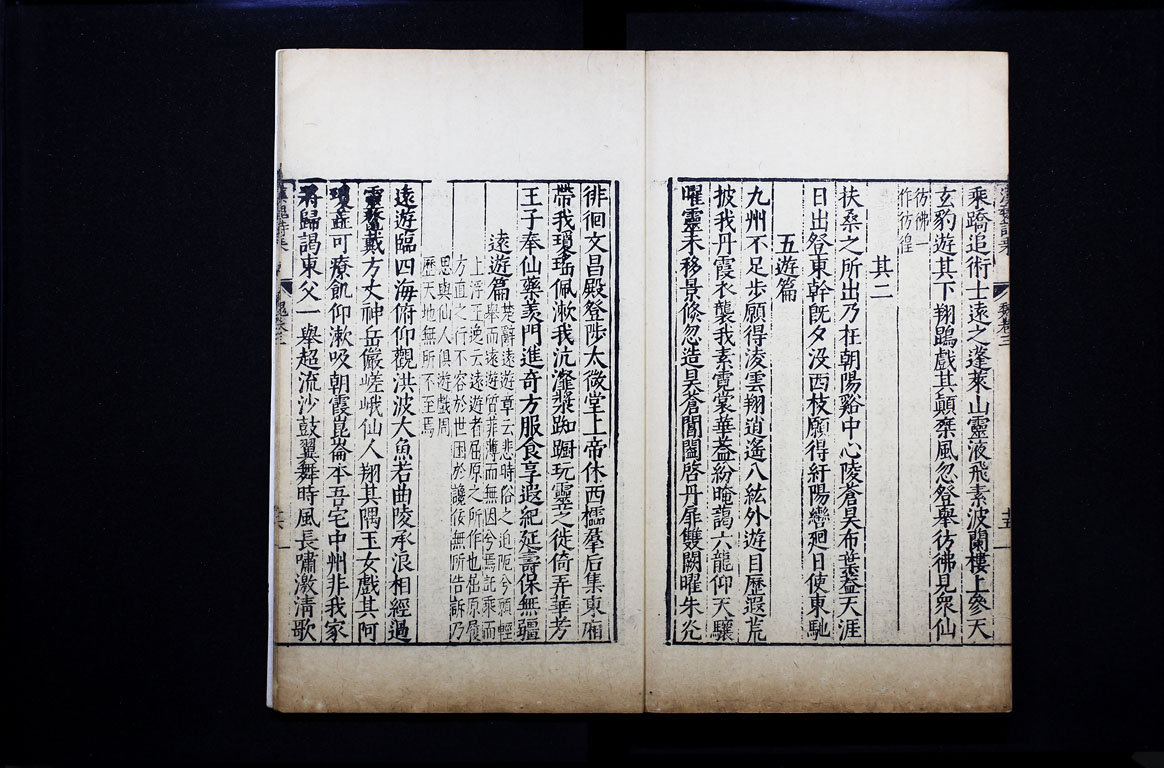 漢魏詩集
魏卷三
十五
乘蹻追術士遠之蓬萊山靈液飛素波蘭樓上參天
玄豹遊其下翔鵾戲其顛乘風忽登舉彷彿見衆仙
彷彿一
作彷徨
其二
扶桑之所出乃在朝陽谿中心陵蒼昊布葉蓋天涯
日出登東幹旣夕沒西枝願得紆陽轡廻日使東馳
五遊篇
九州不足步願得淩雲翔逍遙八紘外遊目歷遐荒
披我丹霞衣襲我素霓裳華蓋紛晻藹六龍仰天驤
曜靈未移景倐忽造昊蒼閶闔啓丹扉雙闕曜朱光
徘徊文昌殿登陟太微堂上帝休西櫺羣后集東廂
帶我瓊瑤佩漱我沆瀣漿踟蹰玩靈芝徙倚弄華芳
王子奉仙藥羨門進奇方服食享遐紀延壽保無疆
遠遊篇
楚辭遠遊章云悲時俗之迫阨兮願輕
舉而遠遊質菲薄而無因兮焉託乘而
上浮王逸云遠遊者屈原之所作也屈原履
方直之行不容於世困於讒佞無所告訴乃
思與仙人俱遊戲周
歷天地無所不至焉
遠遊臨四海俯仰觀洪波大魚若曲陵承浪相經過
靈鼇戴方丈神岳儼嵯峨仙人翔其隅玉女戲其阿
瓊蕊可療飢仰漱吸朝霞崑崙本吾宅中州非我家
將歸謁東父一舉超流沙鼓翼舞時風長嘯激清歌
漢魏詩集
魏卷三